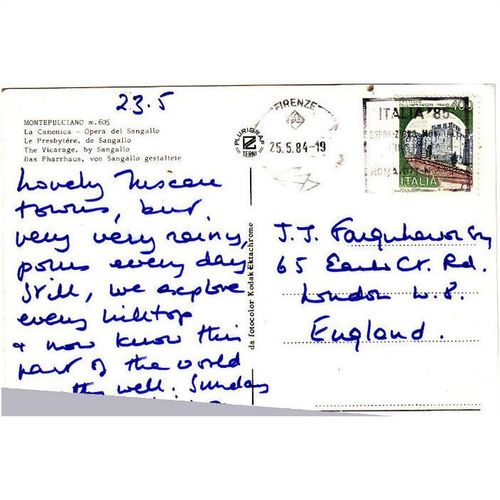 23.5
MONTEPULCIANO m. 605
La Canonica - Opera del Sangallo
Le Presbytére, de Sangallo
The Vicarage, by Sangallo
Das Pharrhaus, von Sangallo gestaltete
Lovely Tuscan
towns, but
very very rainy,
pours every day
Still, we explore
every hilltop
& now know this
part of the world
well. Sunday
da fotocolor Kodak Ektachrome
PLURIGRAF
TERNI
FIRENZE
25.5.84-19
ITALIA '85
400
ITALIA
J.J. Farquharson Esq
65 Earls Ct. Rd.
London W.8.
England.